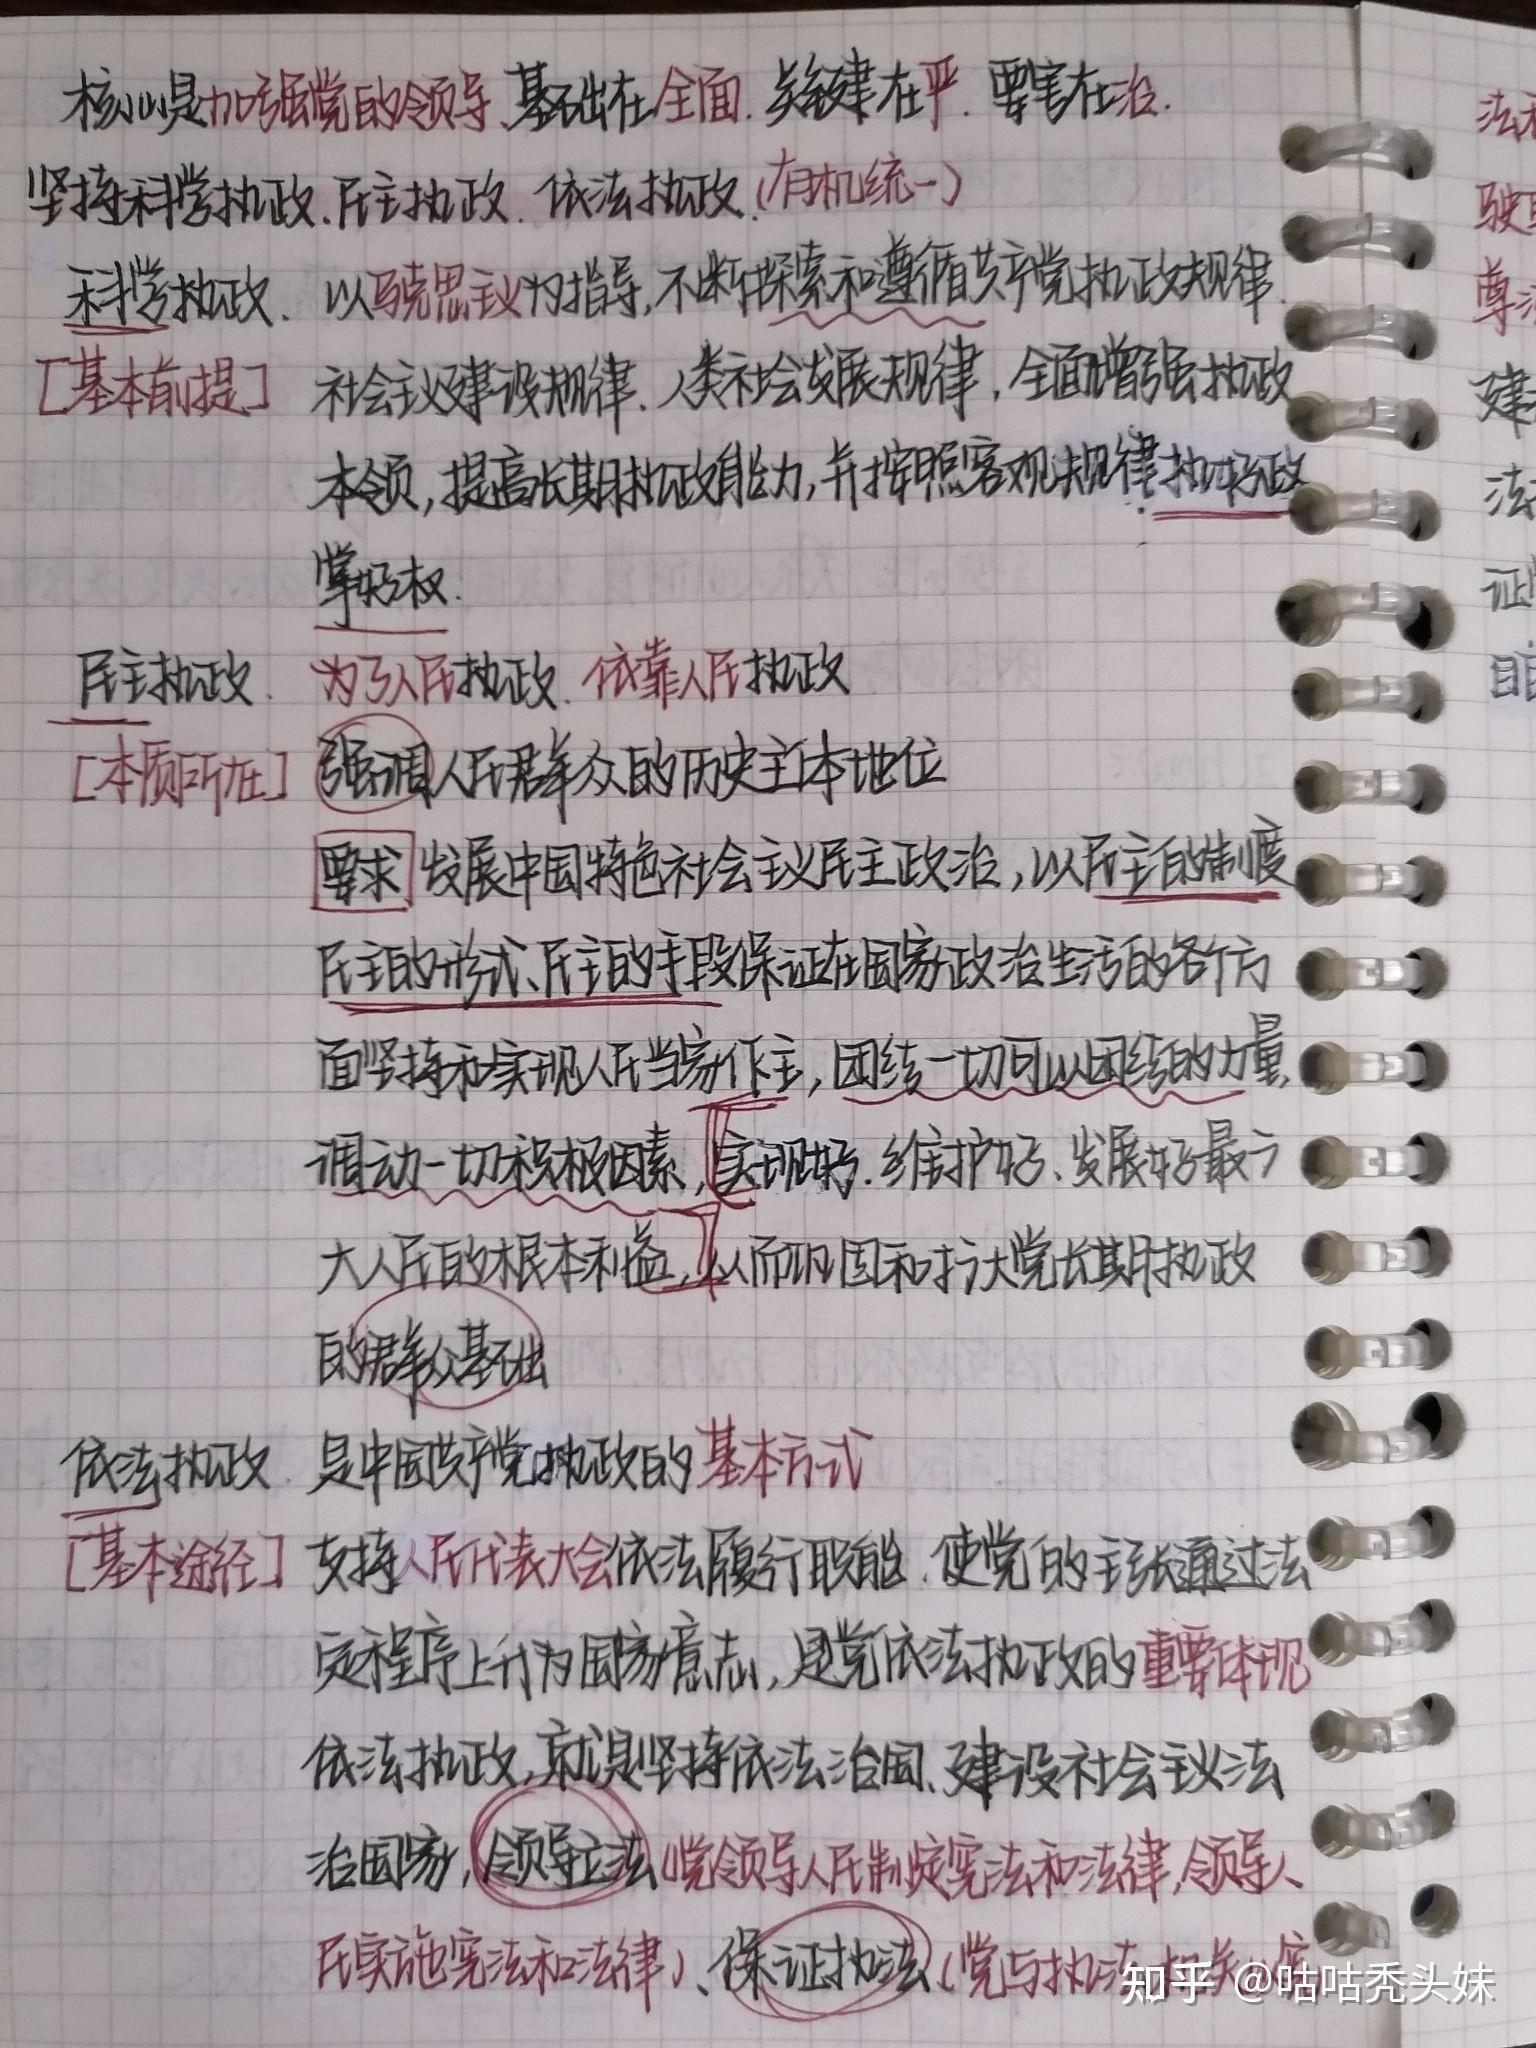 核心是加强党的领导、基础在全面.关键在严.要害在治.
坚持科学执政、民主执政.依法执政.(有机统一)
科学执政. 以马克思主义为指导,不断探索和遵循共产党执政规律.
[基本前提] 社会主义建设规律.人类社会发展规律,全面增强执政
本领,提高长期执政能力,并按照客观规律执好政
掌好权.
民主执政. 为了人民执政.依靠人民执政
[本质所在] 强调人民群众的历史主体地位
要求 发展中国特色社会主义民主政治,以民主的制度
民主的形式、民主的手段保证在国家政治生活的各个方
面坚持和实现人民当家作主,团结一切可以团结的力量,
调动一切积极因素,实现好.维护好、发展好最广
大人民的根本利益,从而巩固和扩大党长期执政
的群众基础
依法执政. 是中国共产党执政的基本方式
[基本途径] 支持人民代表大会依法履行职能.使党的主张通过法
定程序上升为国家意志,是党依法执政的重要体现
依法执政,就是坚持依法治国、建设社会主义法
治国家,领导立法(党领导人民制定宪法和法律,领导人
民实施宪法和法律)、保证执法(党与执法
法
驶
尊
建
法
证
目
知乎 @咕咕秃头妹